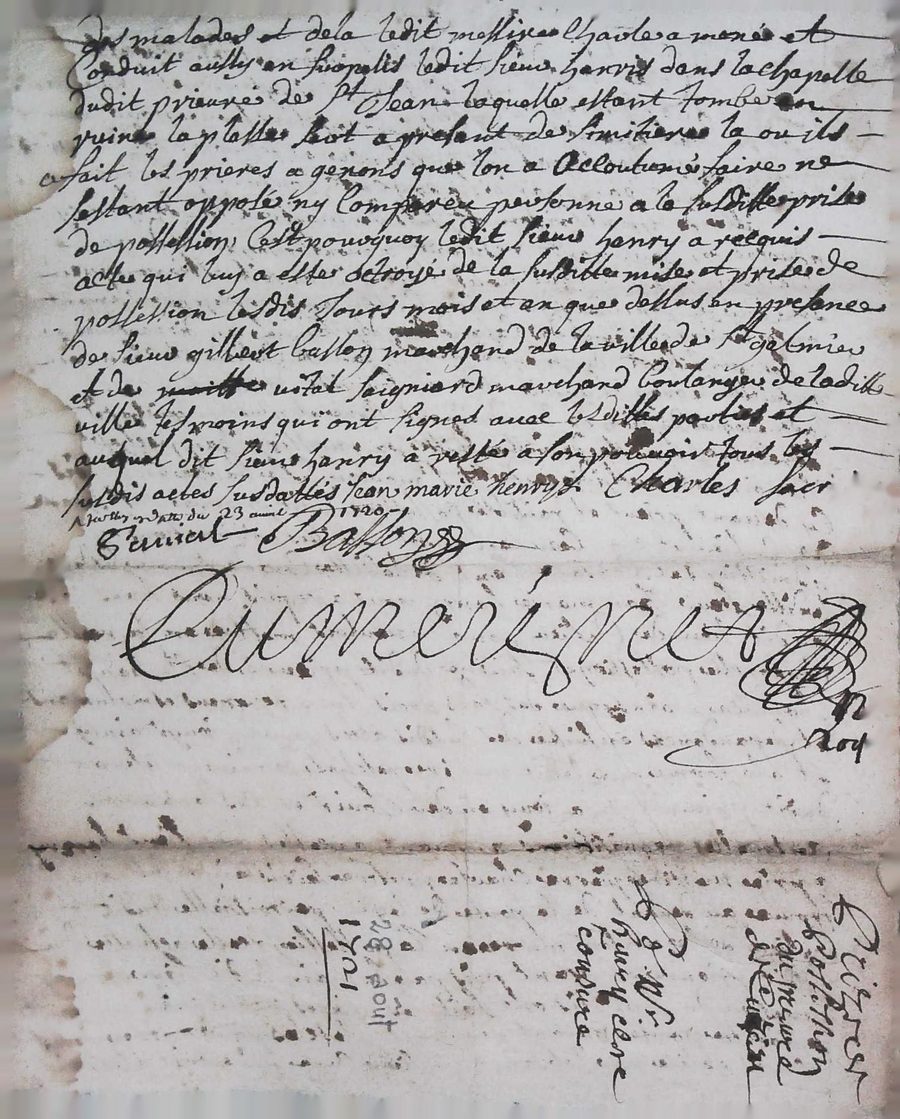 des malades et dela ledit messire Charle a mené et
Conduit aussy en surpelis ledit sieur henrys dans la chapelle
dudit prieuré de St Jean laquelle estant tombé en
ruine la place sert a present de simitiere la ou ils
a fait les prieres a genous que lon a accoutumé faire ne
sestant opposé ny Compareu personne a la susditte prise
de possession, Cest pourquoy ledit sieur henry a requis
acte qui luy a esté octroyé de la susditte mise et prise de
possession lesdis Jours mois et an que dessus en presence
de sieur gilbert Basson marchand de la ville de St galmier
et de vital saigniard marchand boulanger de laditte
ville tesmoins qui ont signes avec lesdittes parties et
auquel dit sieur henry a resté a son pouvoir tous les
susdis actes susdattés Jean marie henrys Charles
du 23 avril 1720
Basson
Dumeignet
Roy
Prise de
possession
du prieuré
de
Mr
henry clere
tonsuré
28 aout
1721